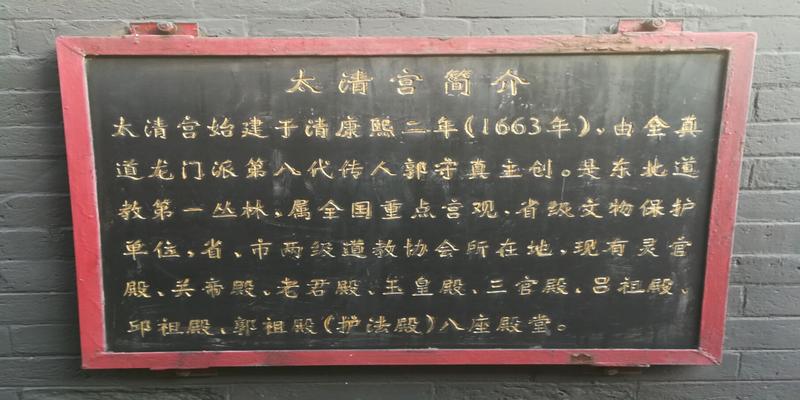 太清宫简介
太清宫始建于清康熙二年(1663年),由全真
道龙门派第八代传人郭守真主创。是东北道
教第一丛林,属全国重点宫观、省级文物保护
单位,省、市两级道教协会所在地,现有灵官
殿、关帝殿、老君殿、玉皇殿、三官殿、吕祖殿、
邱祖殿、郭祖殿(护法殿)八座殿堂。